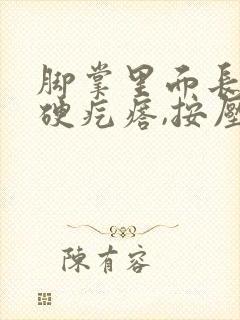 脚掌里面長
硬疙瘩,按壓
陳有容